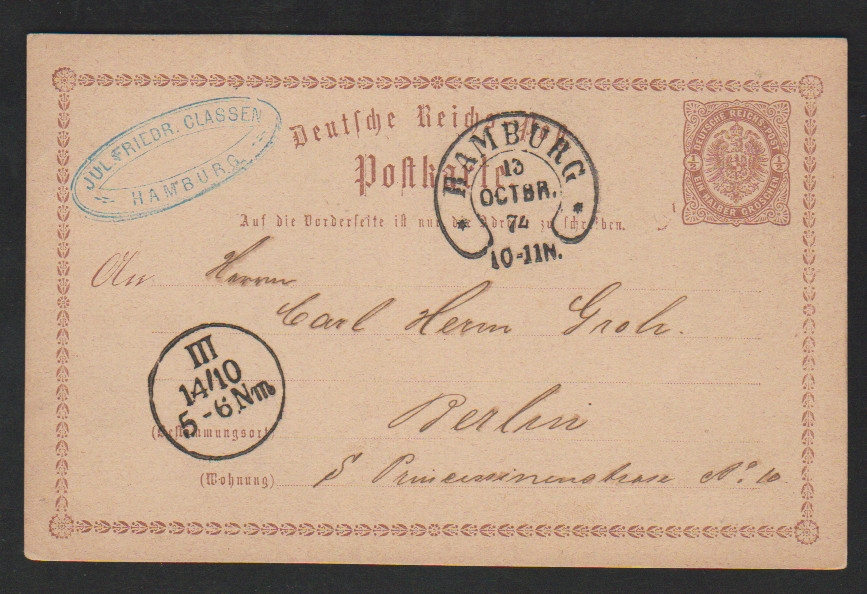 JUL. FRIEDR. CLASSEN
HAMBURG
Deutsche Reichs
Postkarte
Auf die Vorderseite ist nur die Adresse zu schreiben.
DEUTSCHE REICHS-POST
½ ½
EIN HALBER GROSCHEN
HAMBURG
13
OCTBR.
74
10-11N.
An Herrn
Carl Herm Groh.
III
14/10
5-6Nm
Berlin
(Bestimmungsort)
(Wohnung)
S Princessinenstrasse No 10